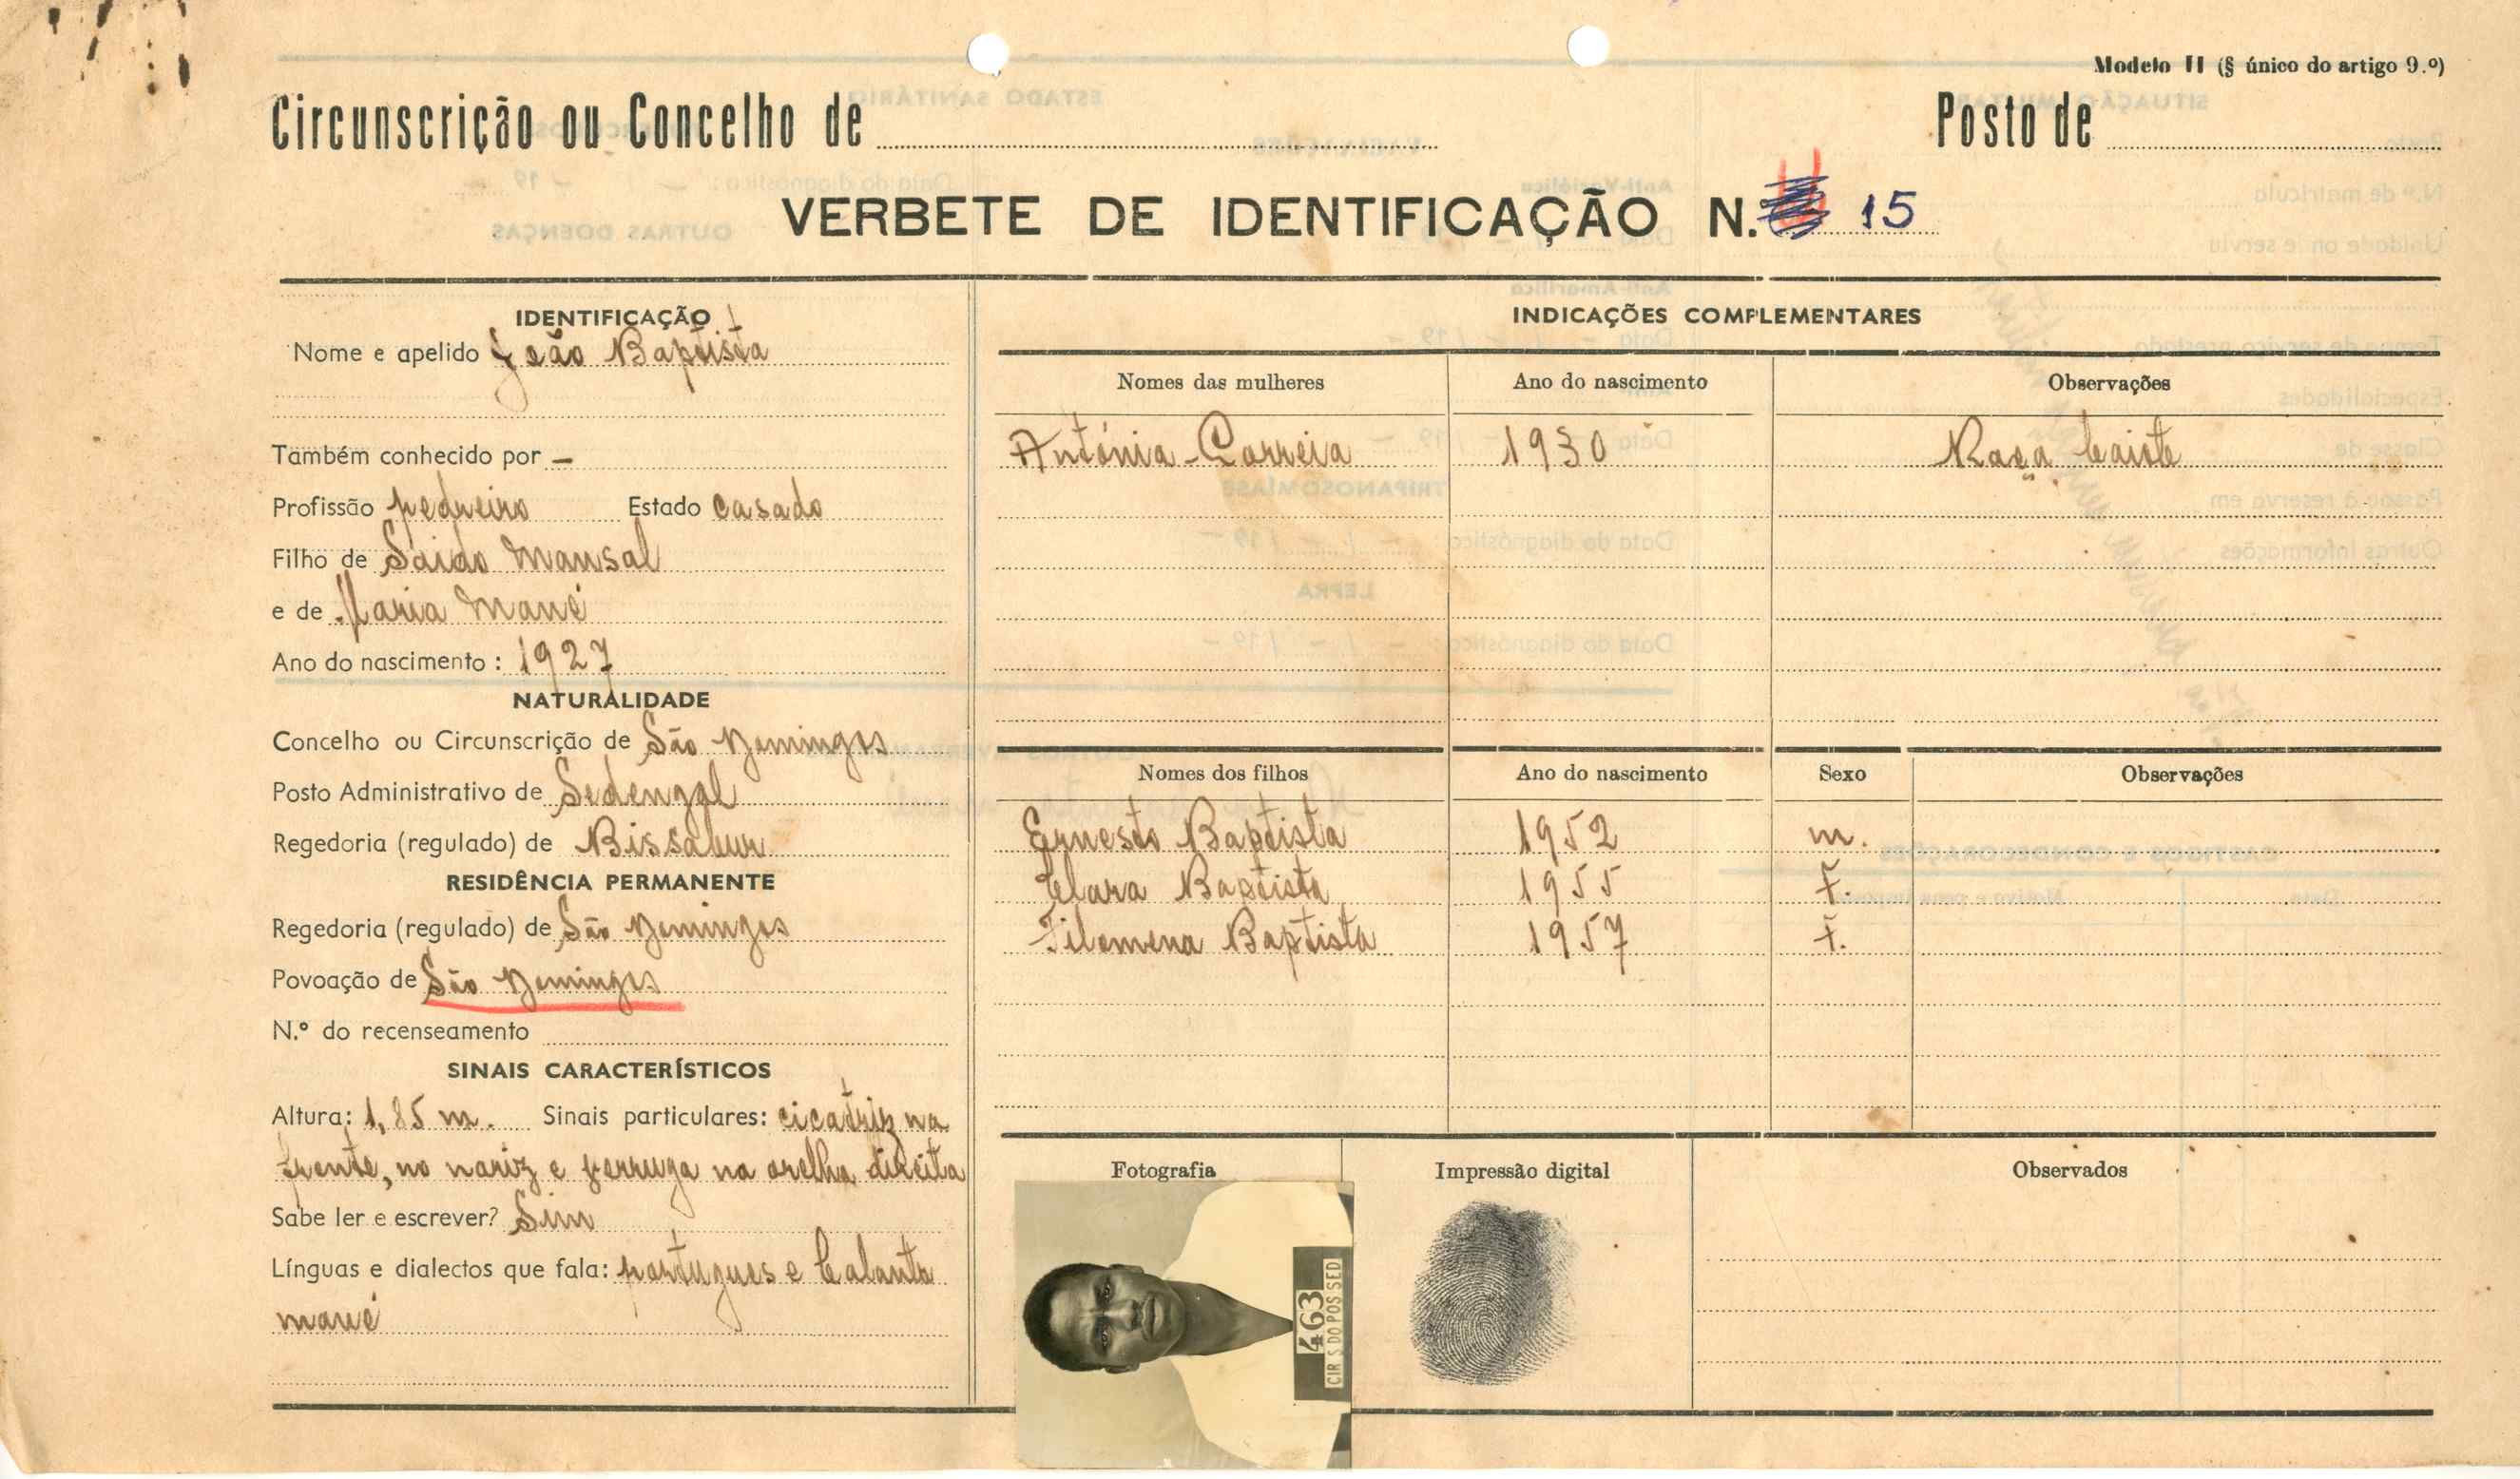 Modelo II (§ único do artigo 9.º)
Circunscrição ou Concelho de
Posto de
VERBETE DE IDENTIFICAÇÃO N. 15
IDENTIFICAÇÃO
Nome e apelido João Baptista
Também conhecido por —
Profissão pedreiro Estado casado
Filho de Saido Mansal
e de Maria Mané
Ano do nascimento: 1927
NATURALIDADE
Concelho ou Circunscrição de São Domingos
Posto Administrativo de Sedengal
Regedoria (regulado) de
RESIDÊNCIA PERMANENTE
Regedoria (regulado) de São Domingos
Povoação de São Domingos
N.º do recenseamento
SINAIS CARACTERÍSTICOS
Altura: 1,85 m. Sinais particulares: cicatriz na
frente, no nariz e verruga na orelha direita
Sabe ler e escrever? Sim
Línguas e dialectos que fala: portugues e
mané
INDICAÇÕES COMPLEMENTARES
Nomes das mulheres Ano do nascimento Observações
Antónia Correia 1930 Raça
Nomes dos filhos Ano do nascimento Sexo Observações
Ernesto Baptista 1952 m.
Clara Baptista 1955 F.
Filomena Baptista 1957 F.
Fotografia Impressão digital Observados
463
CIR S DO POS SED